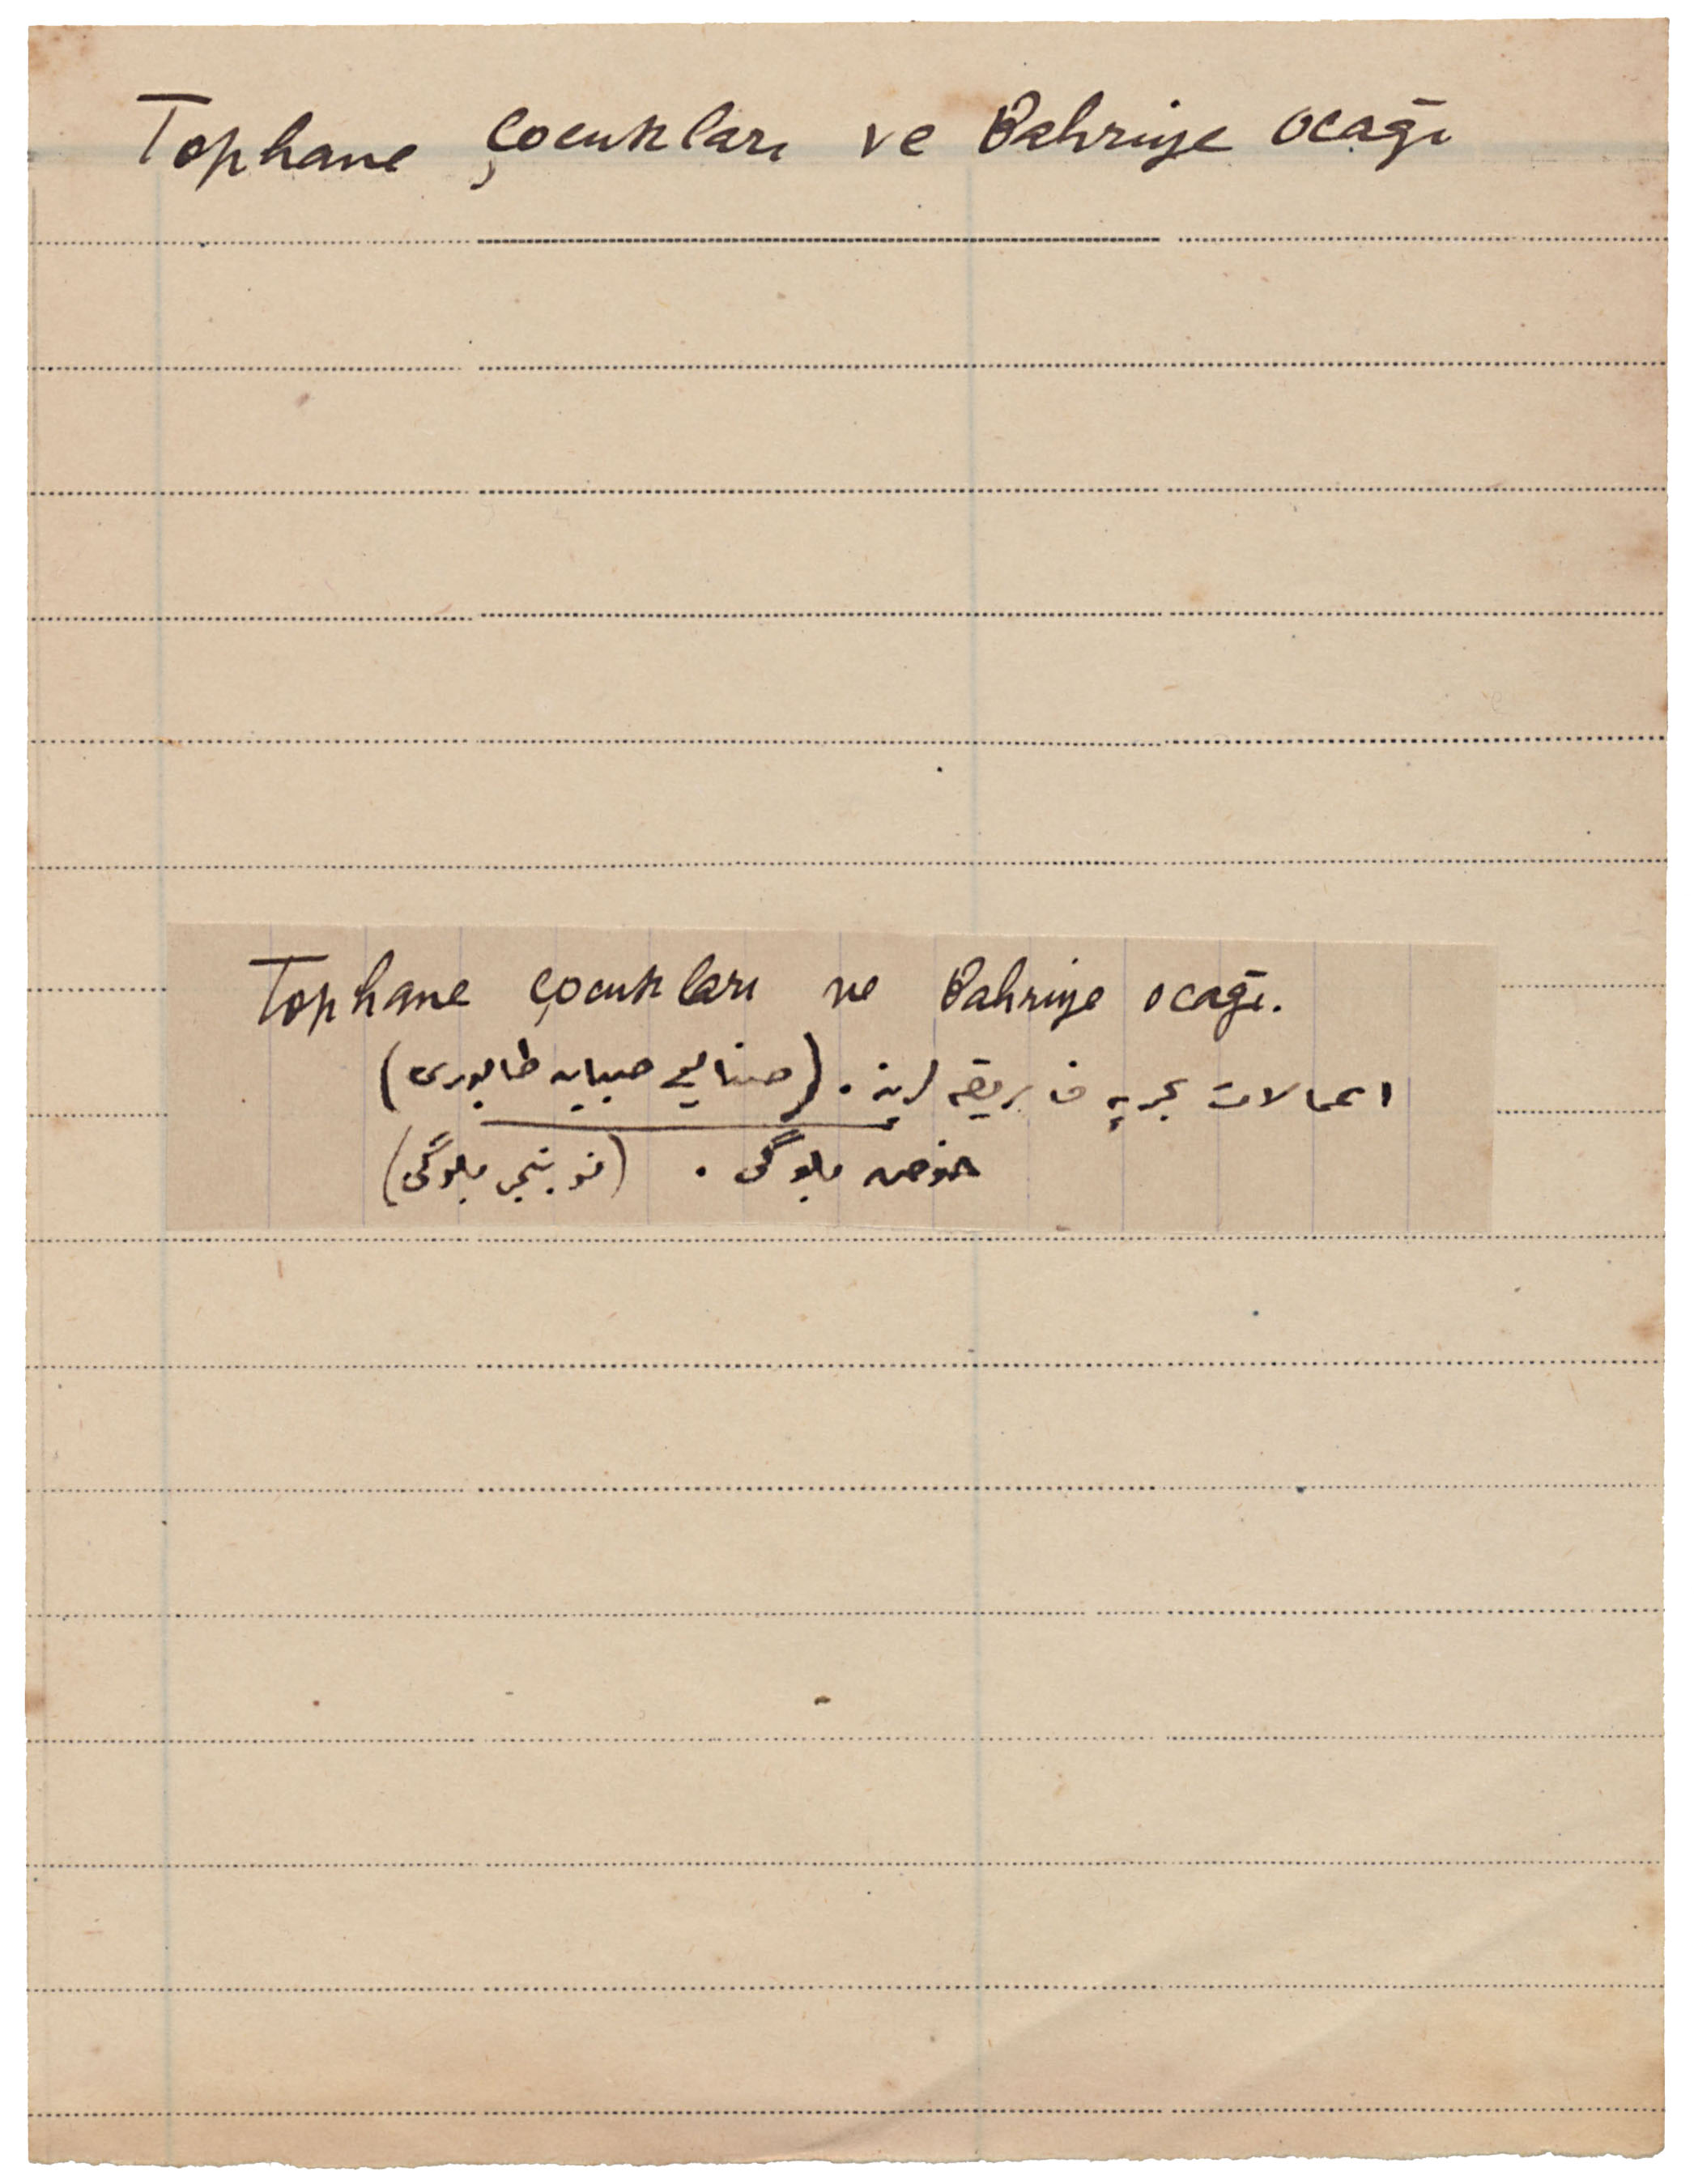 Tophane çocukları ve Bahriye ocağı
Tophane çocukları ve Bahriye ocağı.
اعمالات بحریه فابریقه لرینه . (صنایع صبیان طابوری)
حوض بلوگی . (نوبتجی بلوگی)